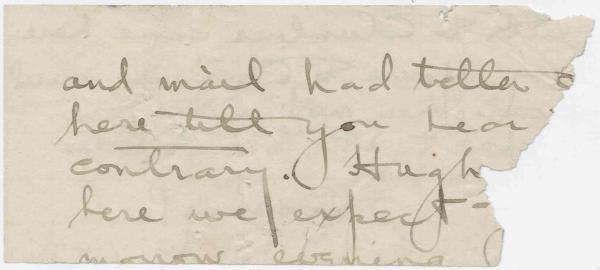 and mail had better c
here till you hear
contrary. Hugh
here we expect -
morrow evening